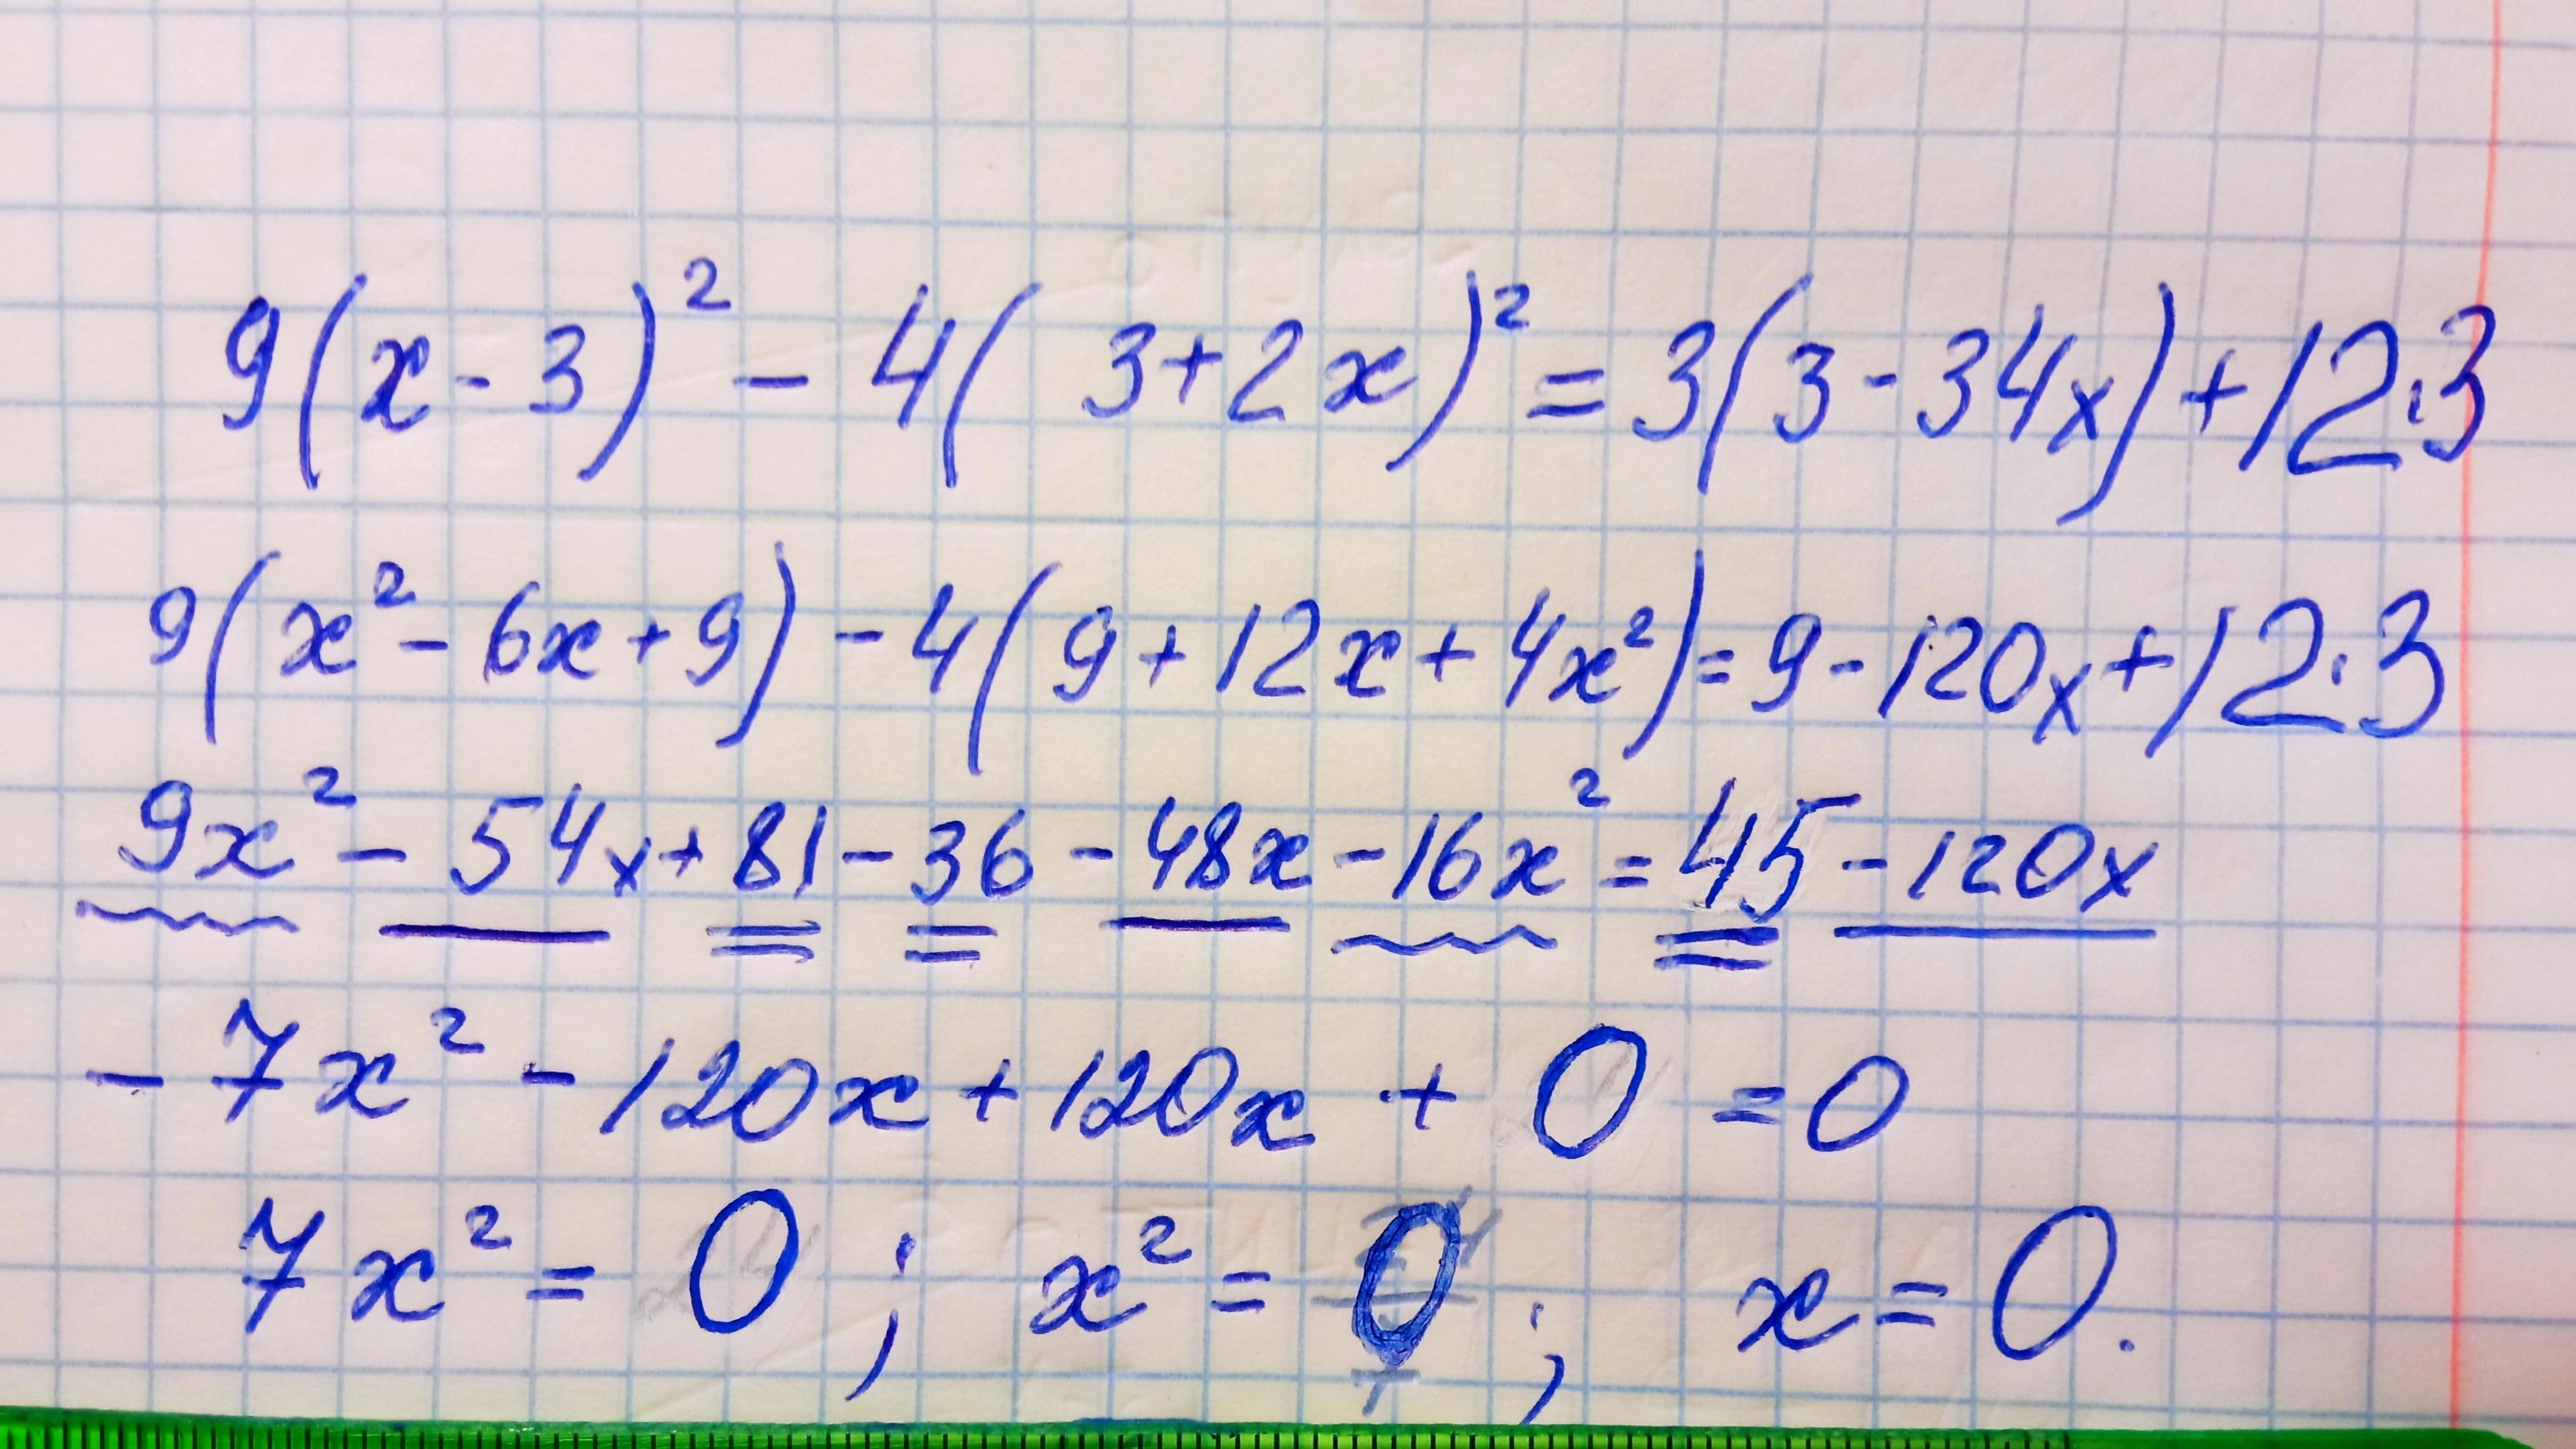 9(x-3)² - 4(3+2x)² = 3(3-34x)+12·3
9(x²-6x+9)-4(9+12x+4x²)=9-120x+12·3
9x²-54x+81-36-48x-16x²=45-120x
-7x²-120x+120x+0=0
7x²=0; x²=0; x=0.